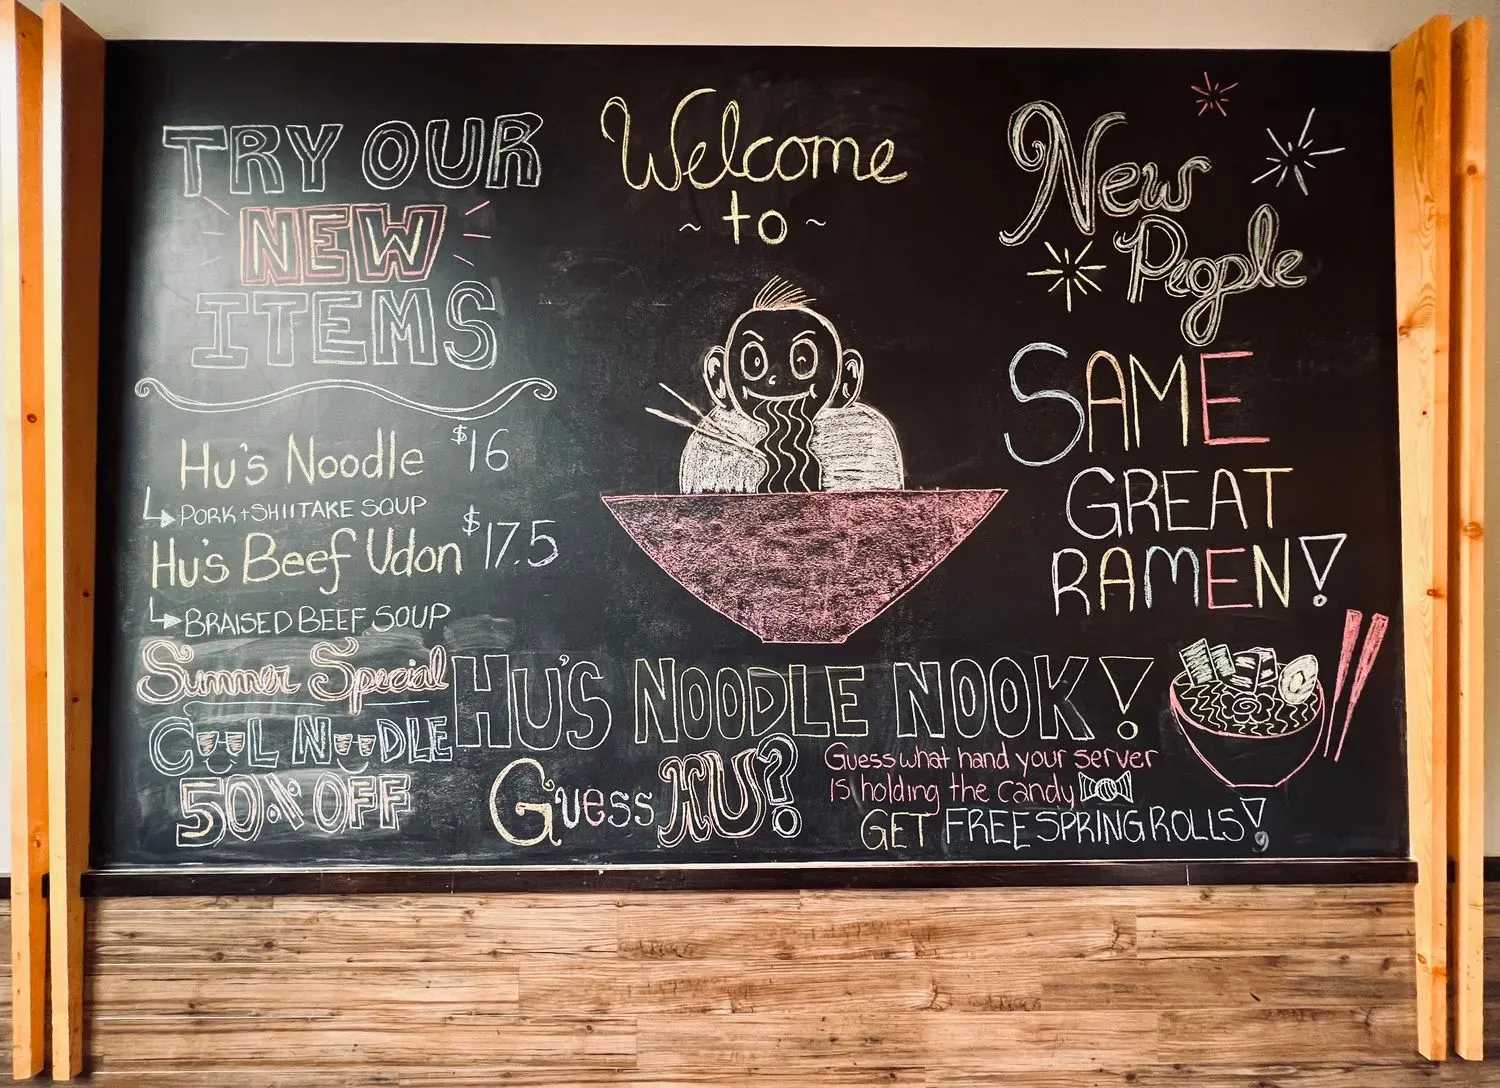 TRY OUR
NEW
ITEMS
Hu's Noodle $16
PORK + SHIITAKE SOUP
Hu's Beef Udon $17.5
BRAISED BEEF SOUP
Summer Special
COOL NOODLE
50% OFF
Welcome
~ to ~
HU'S NOODLE NOOK!
Guess HU?
Guess what hand your server
is holding the candy
GET FREE SPRING ROLLS!
New
People
SAME
GREAT
RAMEN!